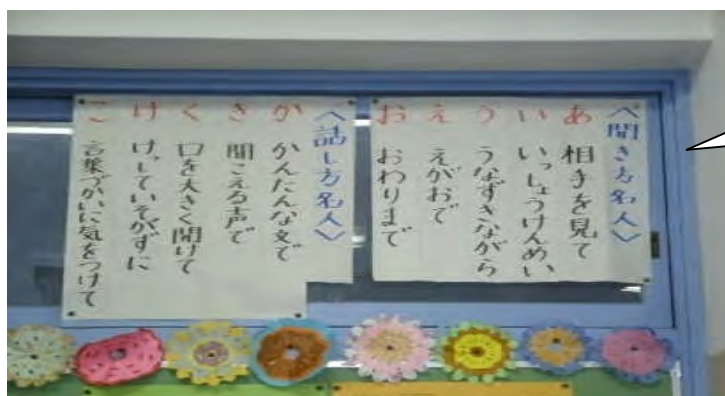 〈聞き方名人〉
あ 相手を見て
い いっしょうけんめい
う うなずきながら
え えがおで
お おわりまで
〈話し方名人〉
か かんたんな文で
き 聞こえる声で
く 口を大きく開けて
け けっしていそがずに
こ 言葉づかいに気をつけて